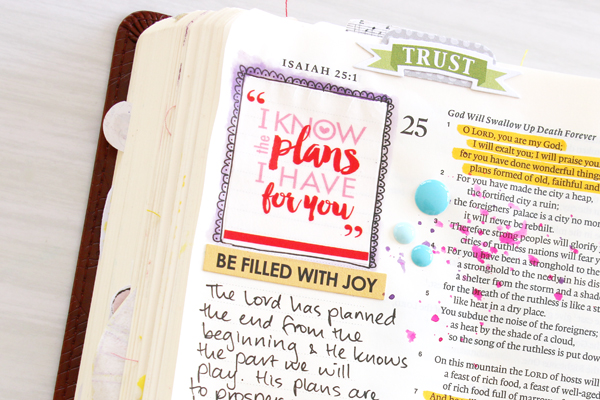 TRUST
ISAIAH 25:1
“
I KNOW
the plans
I HAVE
for you
”
BE FILLED WITH JOY
The Lord has planned
the end from the
beginning & He knows
the part we will
play. His plans are
to prosper
25
God Will Swallow Up Death Forever
1 O LORD, you are my God;
I will exalt you; I will praise you
for you have done wonderful things
plans formed of old, faithful and
2 For you have made the city a heap,
the fortified city a ruin;
the foreigners' palace is a city no mo
it will never be rebuilt.
3 Therefore strong peoples will glorify
cities of ruthless nations will fear yo
4 For you have been a stronghold to the
a stronghold to the needy in his dis
a shelter from the storm and a shad
for the breath of the ruthless is like a st
5 like heat in a dry place.
You subdue the noise of the foreigners;
as heat by the shade of a cloud,
so the song of the ruthless is put dow
6 On this mountain the LORD of hosts will
a feast of rich food, a feast of well-aged
of rich food full of marrow
7 And he